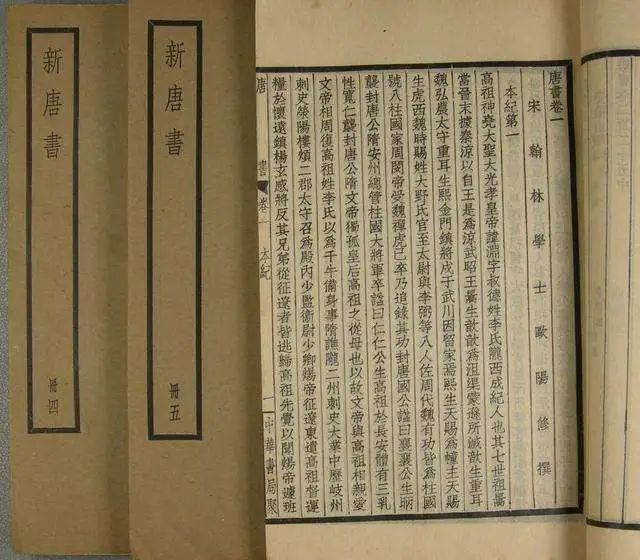 新唐書
冊四
新唐書
冊五
唐書卷一
宋翰林學士歐陽修撰
本紀第一
高祖神堯大聖大光孝皇帝諱淵字叔德姓李氏隴西成紀人也其七世祖暠
當晉末據秦涼以自王是爲涼武昭王暠生歆歆爲沮渠蒙遜所滅歆生重耳
魏弘農太守重耳生熙金門鎮將戍于武川因留家焉熙生天賜爲幢主天賜
生虎西魏時賜姓大野氏官至太尉與李弼等八人佐周代魏有功皆爲柱國
號八柱國家周閔帝受魏禪虎已卒乃追錄其功封唐國公諡曰襄襄公生昞
襲封唐公隋安州總管柱國大將軍卒諡曰仁仁公生高祖於長安體有三乳
性寬仁襲封唐公隋文帝獨孤皇后高祖之從母也以故文帝與高祖相親愛
文帝相周復高祖姓李氏以爲千牛備身事隋譙隴二州刺史大業中歷岐州
刺史滎陽樓煩二郡太守召爲殿內少監衞尉少卿煬帝征遼東遣高祖督運
糧於懷遠鎮楊玄感將反其兄弟從征遼者皆逃歸高祖先覺以聞煬帝遽班
唐書 卷一 本紀 一 中華書局聚